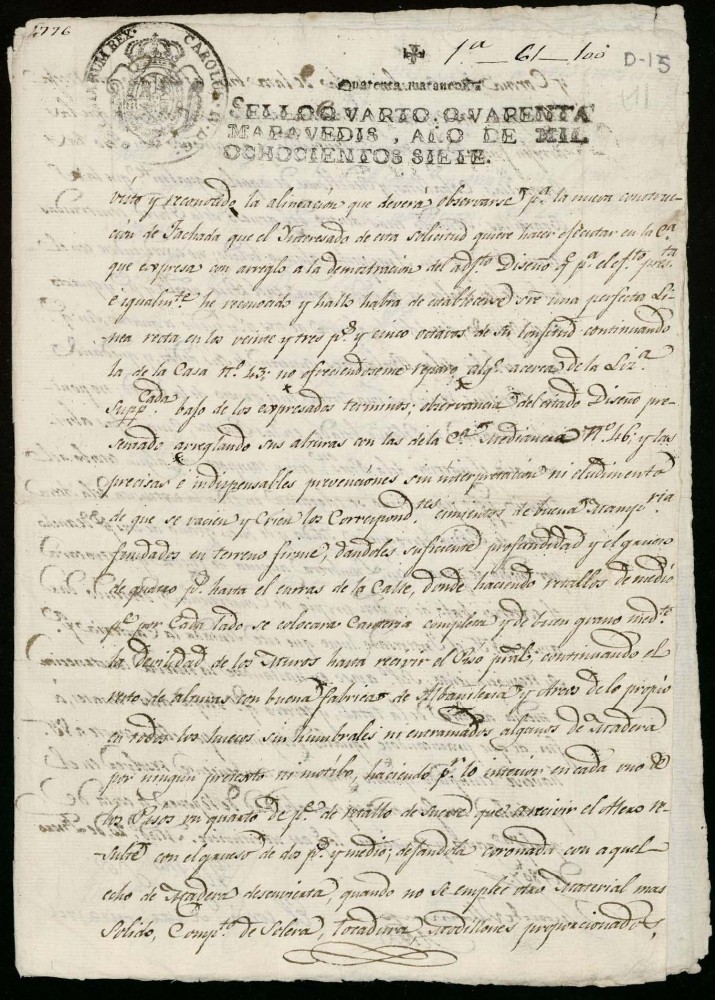 1776
CAROLUS IV D. G. HISPANIARUM REX.
1ª 61 100
D-15
Quarenta maravedis.
SELLO QVARTO, QVARENTA
MARAVEDIS, AÑO DE MIL
OCHOCIENTOS SIETE.
Visto y reconocido la alineación que deverá observarse pª. la nueva construc-
ción de Fachada que el Interesado de esta solicitud quiere hacer ejecutar en la Cª.
que expresa con arreglo a la demostracion del adjto Diseño qe. pª. el efto. presta.
é igualmte. he reconocido y hallo habrá de establecerse sre. una perfecta Li-
nea recta en los veinte y tres ps. y cinco octavos de su longitud continuando
la de la Casa nº. 43; no ofreciendoseme reparo algº. acerca de la Lizª.
Suppcada. bajo de los expresados terminos; observancia del citado Diseño pre-
sentado arreglando sus alturas con las de la Cª. Medianera Nº. 46; y las
precisas é indispensables prevenciones sin interpretacion ni eludimento
de que se vacien y Crien los Correspondtes. cimientos de buena Mampria.
fundados en terreno firme, dandoles suficiente profundidad y el grueso
de quatro ps. hasta el enrras de la Calle, donde haciendo retallos de medio
pe. por Cada lado se colocara Canteria completa y de buen grano medte.
la devilidad de los Muros hasta recivir el Piso pral; continuando el
resto de alturas con buena fabrica de Albañileria y Arcos de lo propio
en todos los huecos sin humbrales ni entramados algunos de Madera
por ningun pretexto ni motibo, haciendo pr. lo interior en cada uno de
los Pisos un quarto de pe. de retallo de suerte que a recivir el Alero re-
sulte con el grueso de dos ps. y medio; dejandola coronada con aquel
echo de Madera descuvierta, quando no se emplee otro Material mas
Solido, Compto. de Solera, tocadura, Modillones proporcionados,